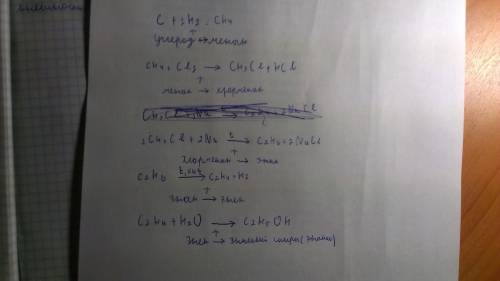 C + 2H2 → CH4
углерод → метан
CH4 + Cl2 → CH3Cl + HCl
метан → хлорметан
2CH3Cl + 2Na →t C2H6 + 2NaCl
Хлорметан → этан
C2H6 →t, кат C2H4 + H2
этан → этен
C2H4 + H2O → C2H5OH
Этен → этиловый спирт (этанол)